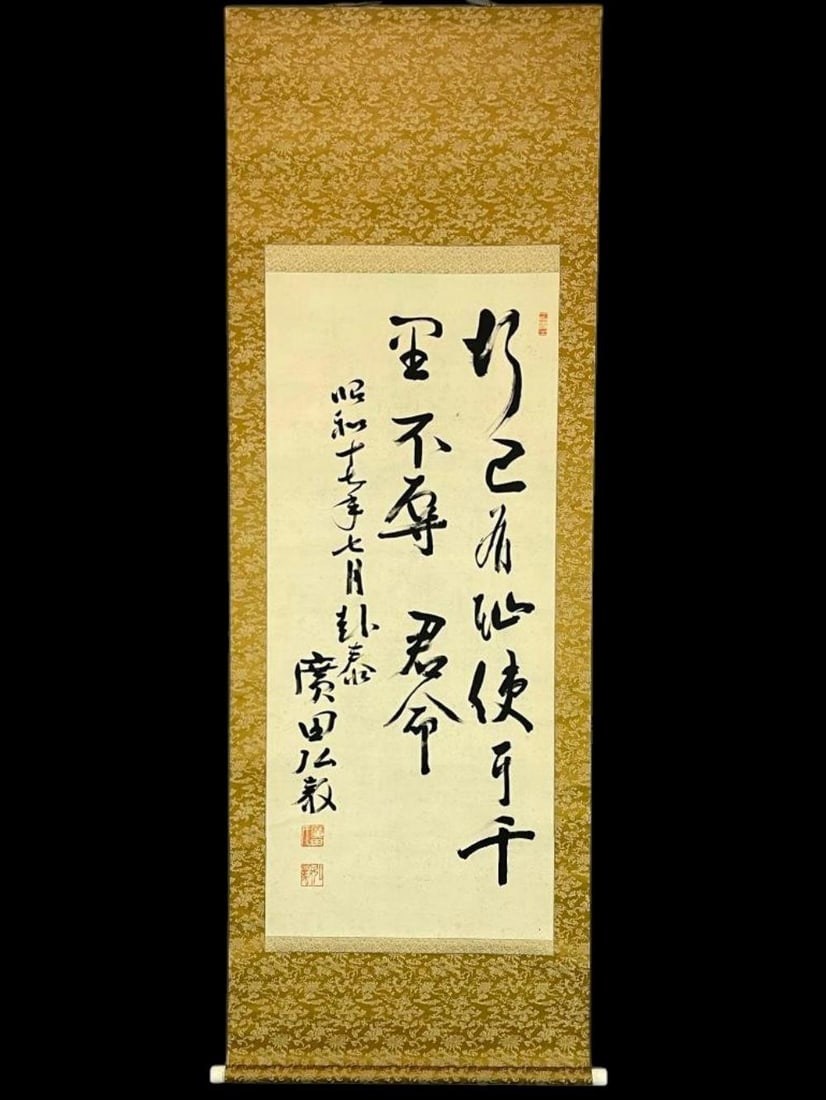 行己有耻使于千
里不辱 君命
昭和十七年七月赴泰
廣田弘毅